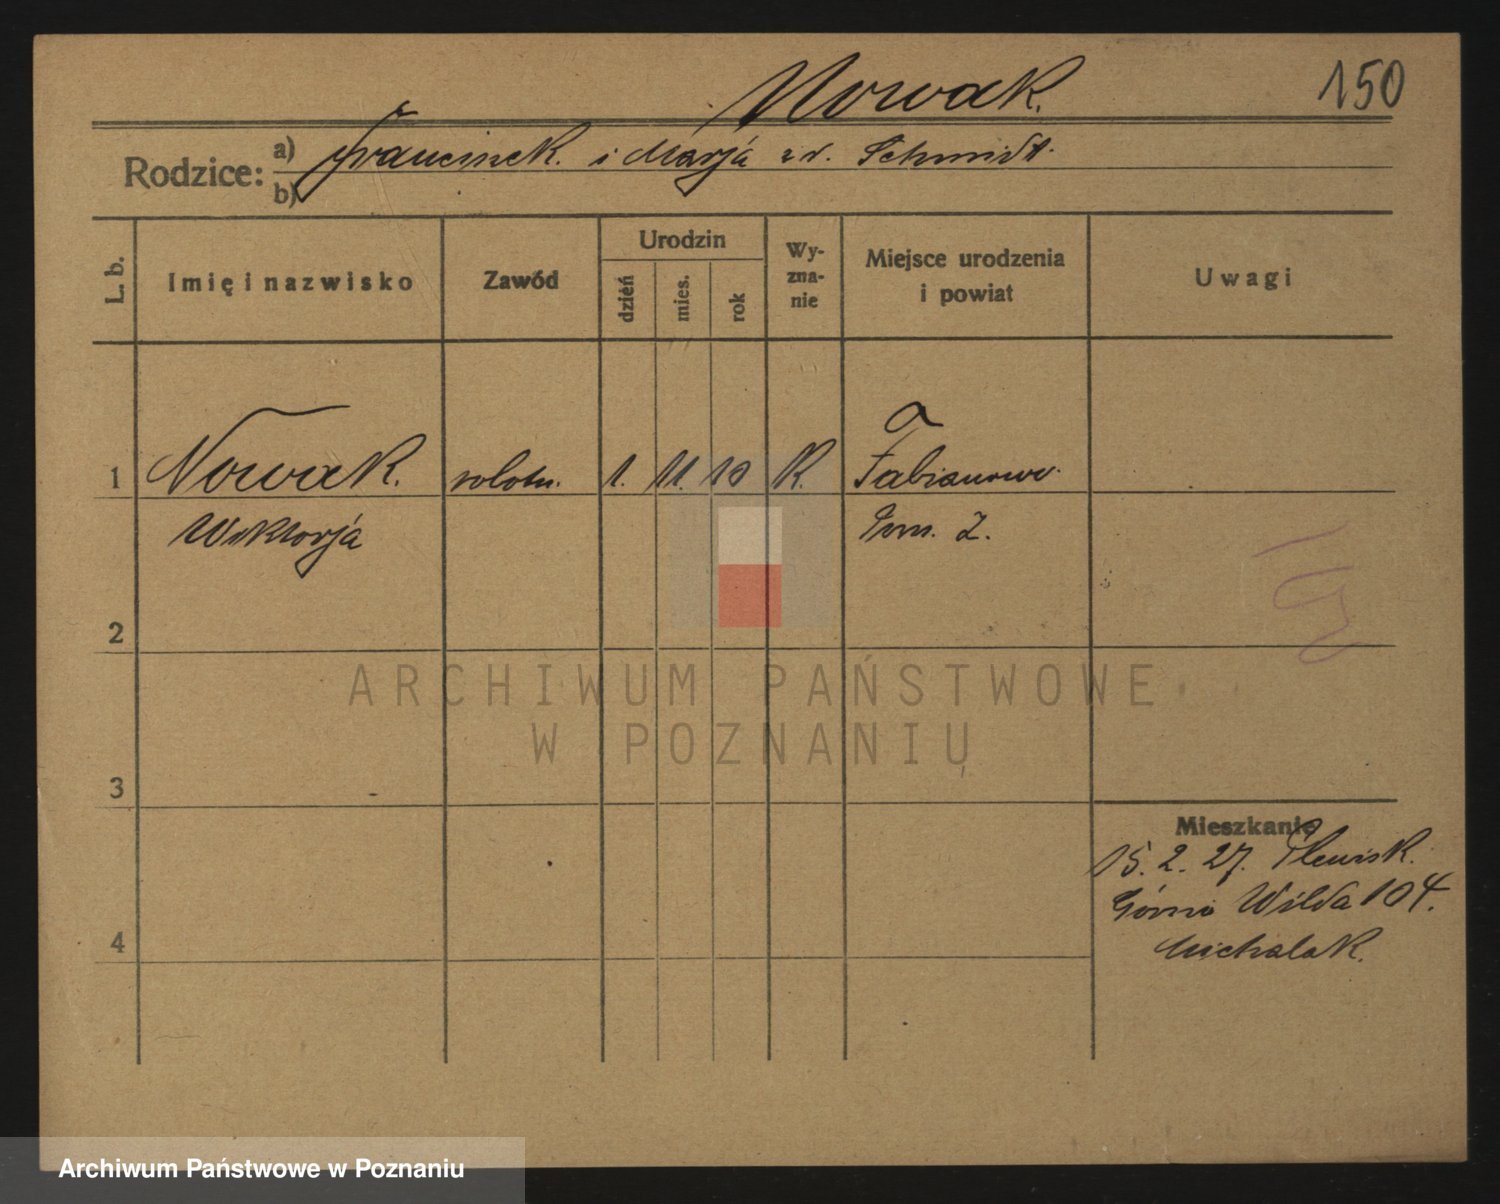 Nowak.
150
Rodzice:
a) Franciszek. i Marja zd. Schmidt.
b)
L. b.
Imię i nazwisko
Zawód
Urodzin
dzień
mies.
rok
Wy-
zna-
nie
Miejsce urodzenia
i powiat
Uwagi
1 Nowak. robotn. 1. 11. 10 K. Fabianowo
Wiktorja
2
3
4
Mieszkanie
15. 2. 27. Plewisk.
Górna Wilda 104.
Michalak.
ARCHIWUM PAŃSTWOWE
W POZNANIU
Archiwum Państwowe w Poznaniu